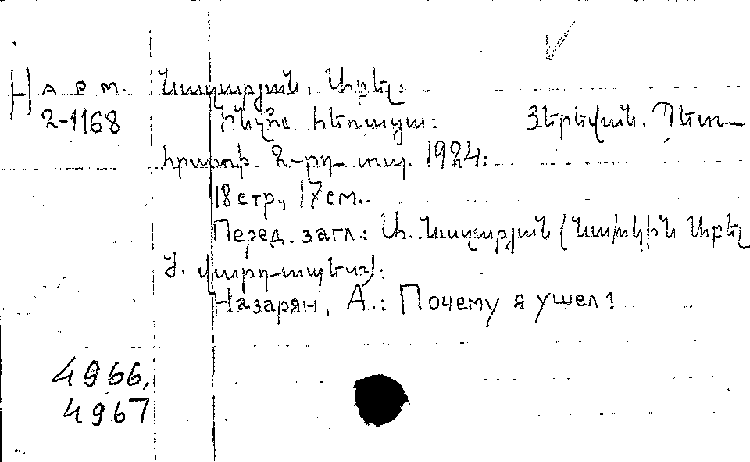 Н арм. Նազարյան, Աբել։
2-1168 Ինչու հեռացա։ Յերեվան. Պետ—
հրատ. 2-րդ տպ. 1924։
18 стр, 17 см.
Перед. загл.: Ա. Նազարյան (նախկին Աբել
Ծ. վարդապետ)։
Назарян, А.: Почему я ушел?
4966,
4967